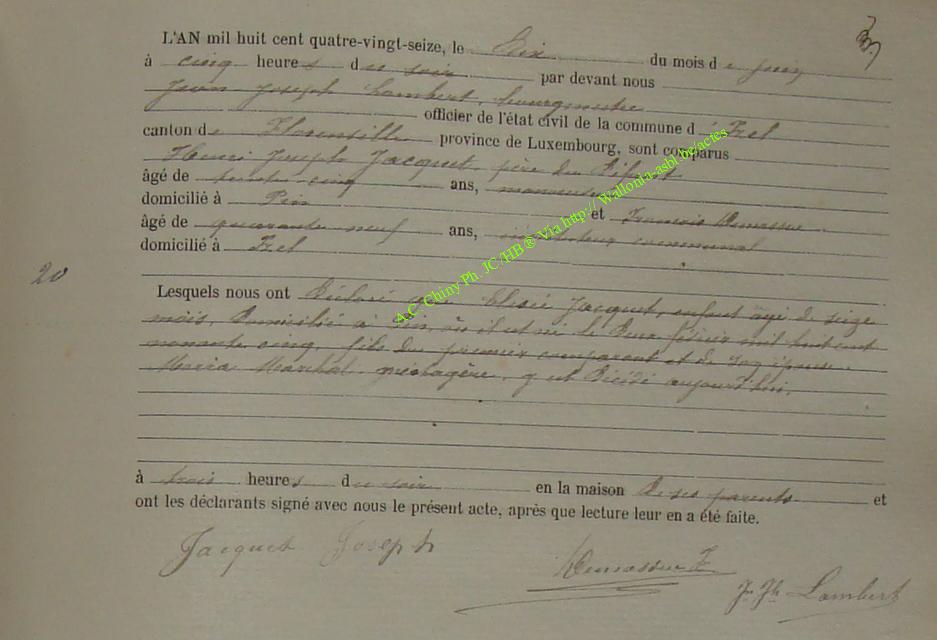 L'AN mil huit cent quatre-vingt-seize, le Dix du mois de juin
à cinq heures du soir par devant nous
Jean Joseph Lambert, bourgmestre
officier de l'état civil de la commune d'Izel
canton de Florenville province de Luxembourg, sont comparus
Henri Joseph Jacquet, père du Défunt
âgé de trente cinq ans, manoeuvre
domicilié à Pin et François
âgé de quarante neuf ans, communal
domicilié à Izel
20
Lesquels nous ont Déclaré que Elisée Jacquet, enfant âgé de seize
mois, Domicilié à Pin, où il est né le Deux février mil huit cent
nonante cinq, fils du premier comparant et de son épouse
Maria Marchal, ménagère, y est Décédé aujourd'hui,
à trois heures du soir en la maison De ses parents et
ont les déclarants signé avec nous le présent acte, après que lecture leur en a été faite.
Jacquet Joseph
J. Jh Lambert
A.C. Chiny Ph. JC/HB ® Via http:// Wallonia-asbl be/actes